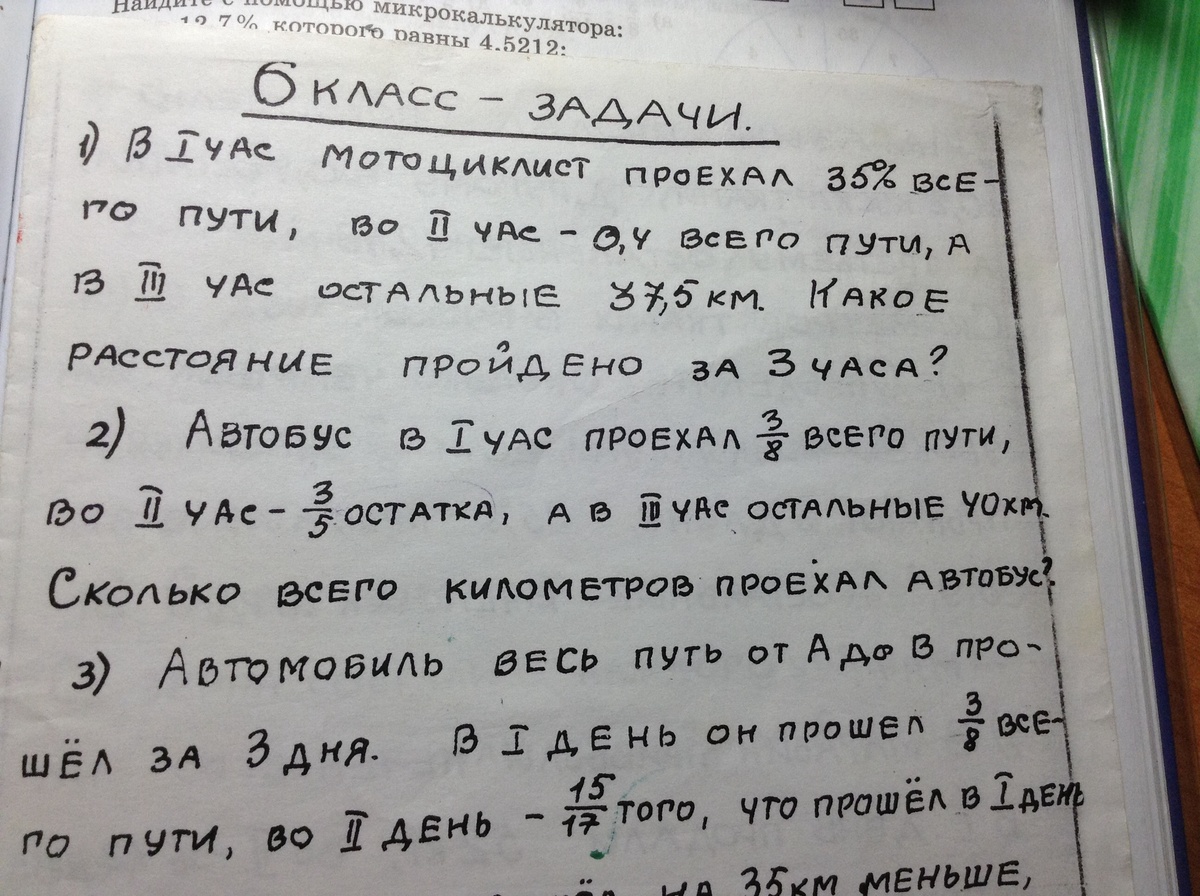 Найдите с помощью микрокалькулятора:
12,7% которого равны 4,5212;
6 КЛАСС – ЗАДАЧИ.
1) В I ЧАС МОТОЦИКЛИСТ ПРОЕХАЛ 35% ВСЕ-
ГО ПУТИ, ВО II ЧАС – 0,4 ВСЕГО ПУТИ, А
В III ЧАС ОСТАЛЬНЫЕ 37,5 КМ. КАКОЕ
РАССТОЯНИЕ ПРОЙДЕНО ЗА 3 ЧАСА?
2) АВТОБУС В I ЧАС ПРОЕХАЛ 3/8 ВСЕГО ПУТИ,
ВО II ЧАС – 3/5 ОСТАТКА, А В III ЧАС ОСТАЛЬНЫЕ 40 КМ.
СКОЛЬКО ВСЕГО КИЛОМЕТРОВ ПРОЕХАЛ АВТОБУС?
3) АВТОМОБИЛЬ ВЕСЬ ПУТЬ ОТ А ДО В ПРО-
ШЁЛ ЗА 3 ДНЯ. В I ДЕНЬ ОН ПРОШЕЛ 3/8 ВСЕ-
ГО ПУТИ, ВО II ДЕНЬ – 15/17 ТОГО, ЧТО ПРОШЁЛ В I ДЕНЬ
НА 35 КМ МЕНЬШЕ,